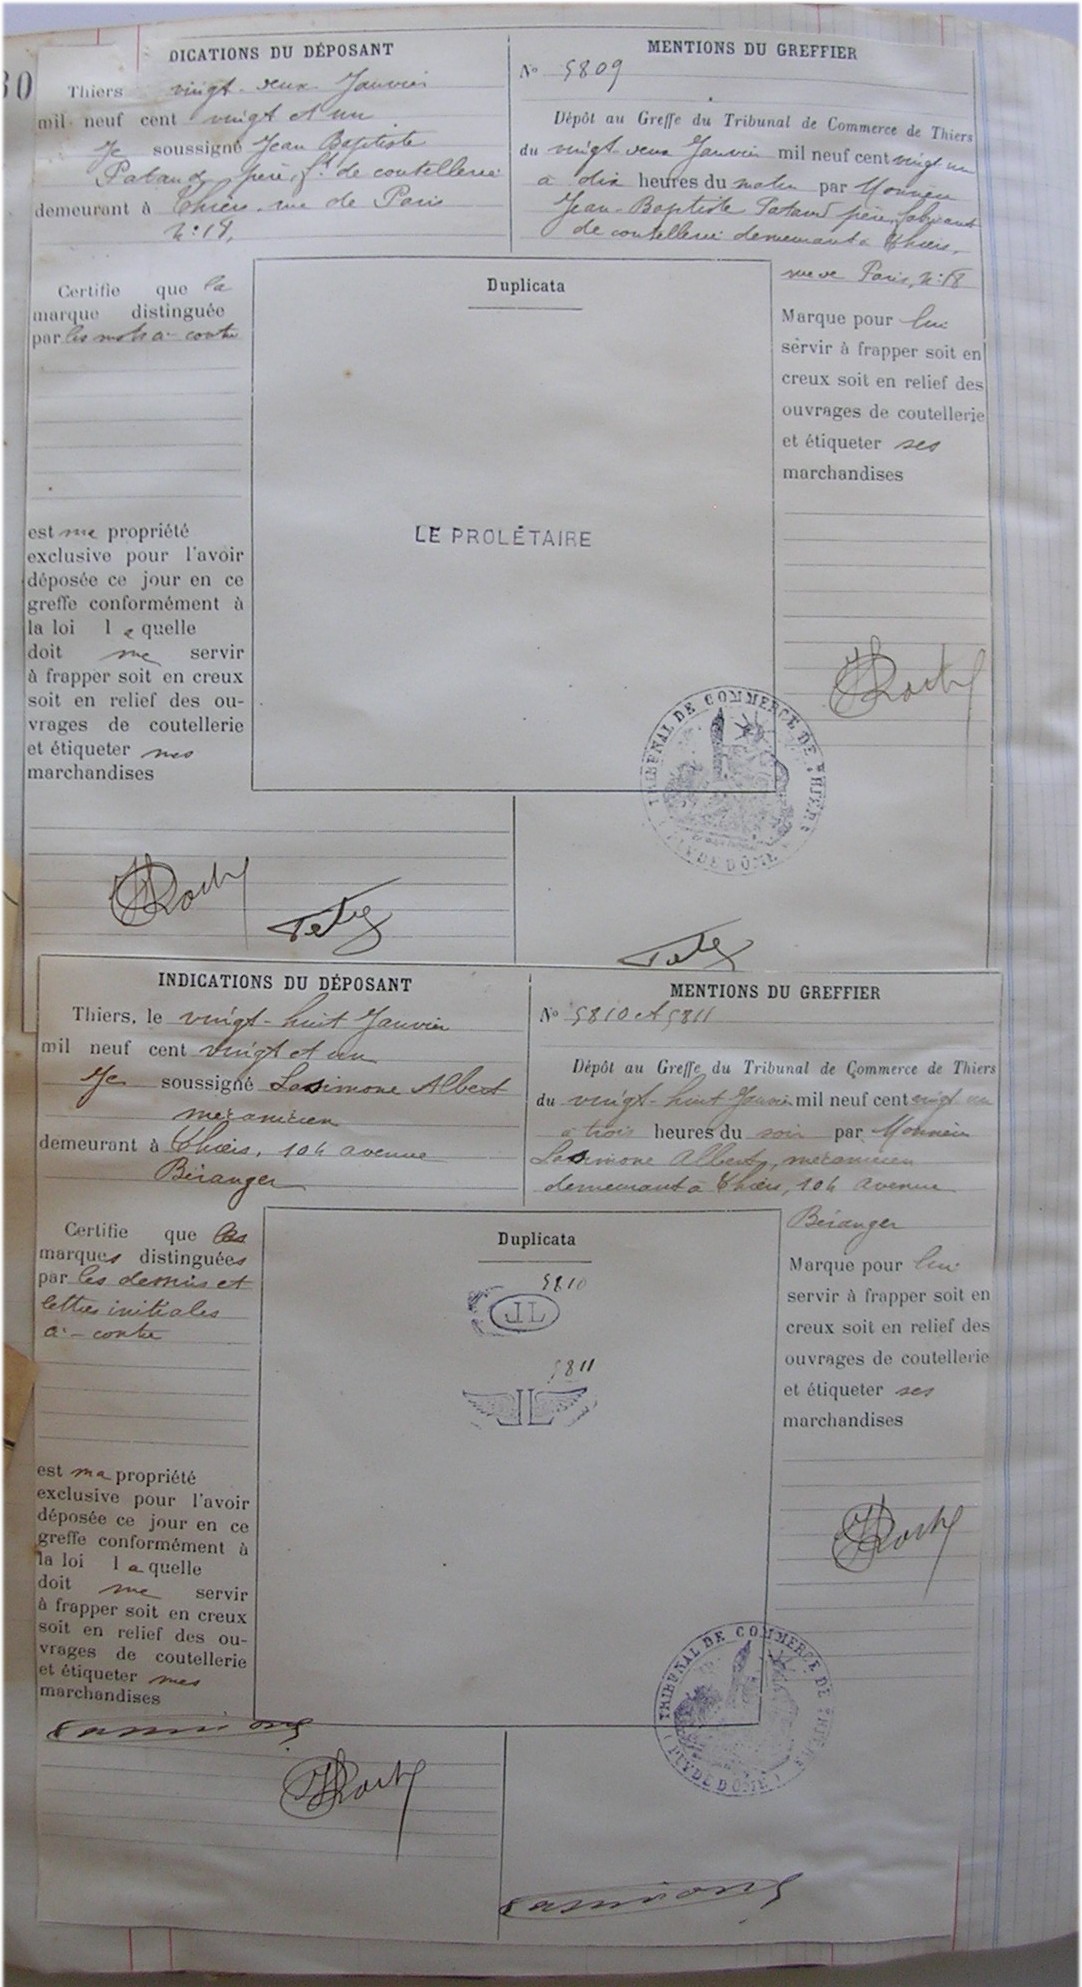 30
DICATIONS DU DÉPOSANT
Thiers vingt-deux Janvier
mil neuf cent vingt et un
Je soussigné Jean Baptiste
Pataud père, ft de coutellerie
demeurant à Thiers, rue de Paris
No: 18,
Certifie que la
marque distinguée
par les mots ci-contre
est ma propriété
exclusive pour l'avoir
déposée ce jour en ce
greffe conformément à
la loi laquelle
doit me servir
à frapper soit en creux
soit en relief des ou-
vrages de coutellerie
et étiqueter mes
marchandises
MENTIONS DU GREFFIER
No 5809
Dépôt au Greffe du Tribunal de Commerce de Thiers
du vingt-deux Janvier mil neuf cent vingt un
à dix heures du matin par Monsieur
Jean-Baptiste Pataud père, fabricant
de coutellerie demeurant à Thiers,
rue de Paris, No: 18
Duplicata
LE PROLÉTAIRE
Marque pour lui
servir à frapper soit en
creux soit en relief des
ouvrages de coutellerie
et étiqueter ses
marchandises
TRIBUNAL DE COMMERCE DE THIERS
(PUY DE DÔME)
INDICATIONS DU DÉPOSANT
Thiers, le vingt-huit Janvier
mil neuf cent vingt et un
Je soussigné Lasimone Albert
mécanicien
demeurant à Thiers, 104 avenue
Béranger
Certifie que les
marques distinguées
par les dessins et
lettres initiales
ci-contre
est ma propriété
exclusive pour l'avoir
déposée ce jour en ce
greffe conformément à
la loi laquelle
doit me servir
à frapper soit en creux
soit en relief des ou-
vrages de coutellerie
et étiqueter mes
marchandises
MENTIONS DU GREFFIER
No 5810 et 5811
Dépôt au Greffe du Tribunal de Commerce de Thiers
du vingt-huit Janvier mil neuf cent vingt un
à trois heures du soir par Monsieur
Lasimone Albert, mécanicien
demeurant à Thiers, 104 avenue
Béranger
Duplicata
5810
5811
Marque pour lui
servir à frapper soit en
creux soit en relief des
ouvrages de coutellerie
et étiqueter ses
marchandises
TRIBUNAL DE COMMERCE DE THIERS
(PUY DE DÔME)